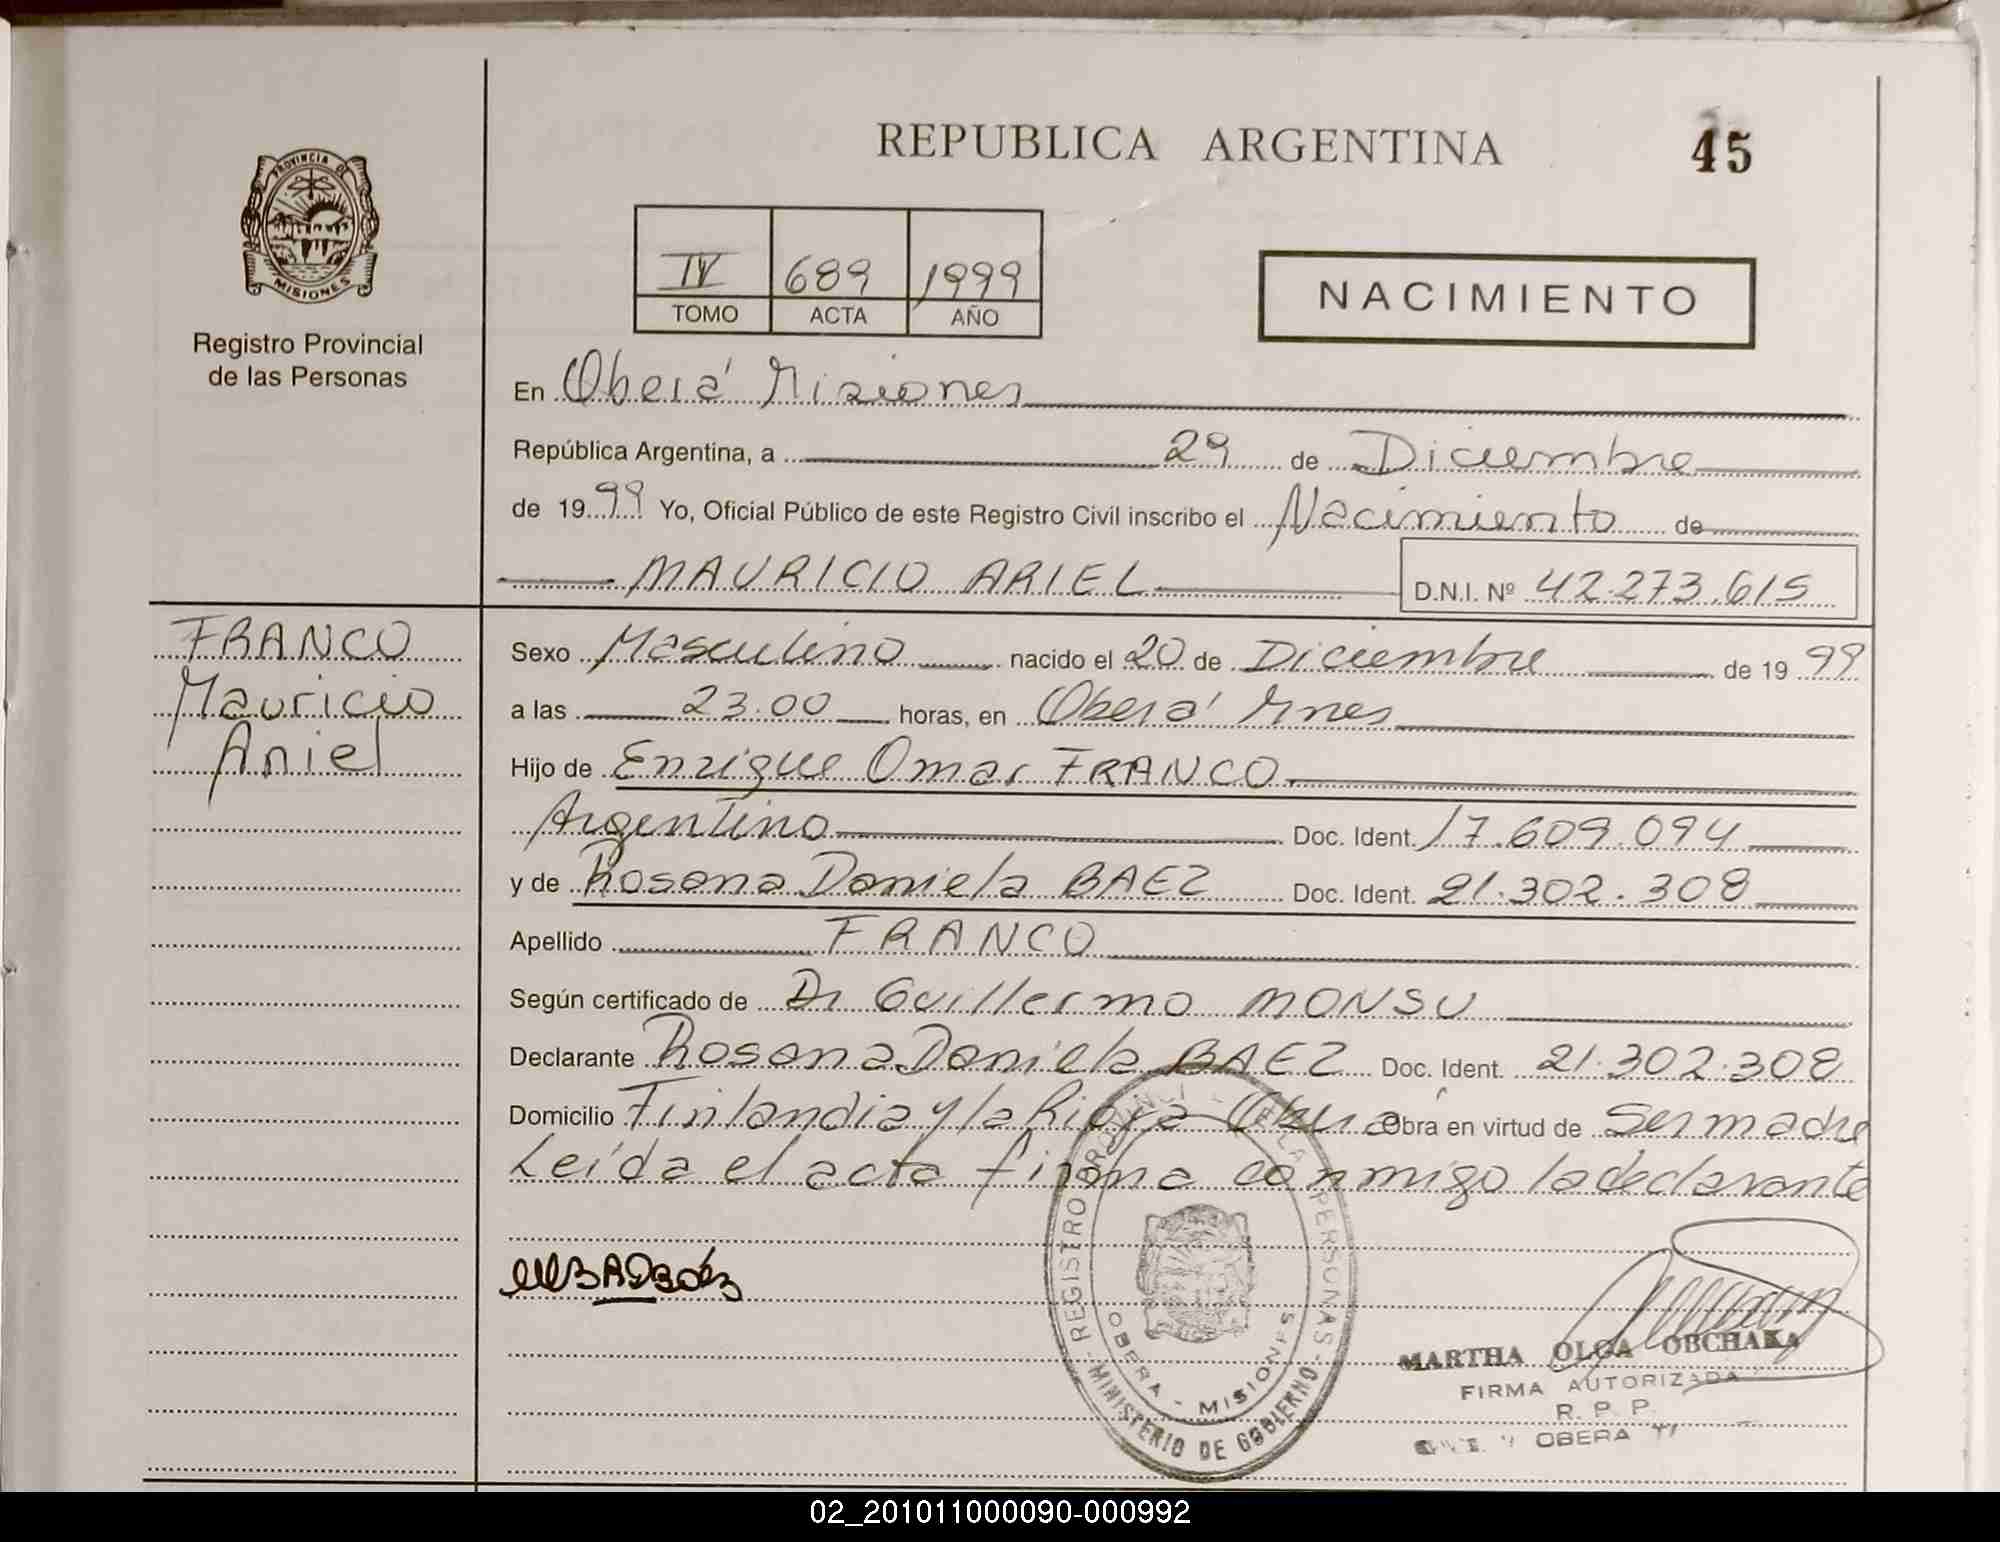 REPUBLICA ARGENTINA
45
PROVINCIA DE
MISIONES
Registro Provincial
de las Personas
IV 689 1999
TOMO ACTA AÑO
NACIMIENTO
En Oberá Misiones
República Argentina, a 29 de Diciembre
de 1999 Yo, Oficial Público de este Registro Civil inscribo el Nacimiento de
MAURICIO ARIEL D.N.I. Nº 42.273.615
FRANCO
Mauricio
Ariel
Sexo Masculino nacido el 20 de Diciembre de 1999
a las 23.00 horas, en Oberá Mnes
Hijo de Enrique Omar FRANCO
Argentino Doc. Ident. 17.609.094
y de Rosana Daniela BAEZ Doc. Ident. 21.302.308
Apellido FRANCO
Según certificado de Dr Guillermo MONSU
Declarante Rosana Daniela BAEZ Doc. Ident. 21.302.308
Domicilio Finlandia y la Rioja Oberá Obra en virtud de Ser madre
Leída el acta firma conmigo la declarante
REGISTRO PROVINCIAL DE LAS PERSONAS
OBERA - MISIONES
MINISTERIO DE GOBIERNO
MARTHA OLGA OBCHAKA
FIRMA AUTORIZADA
R. P. P.
OBERA
02_201011000090-000992